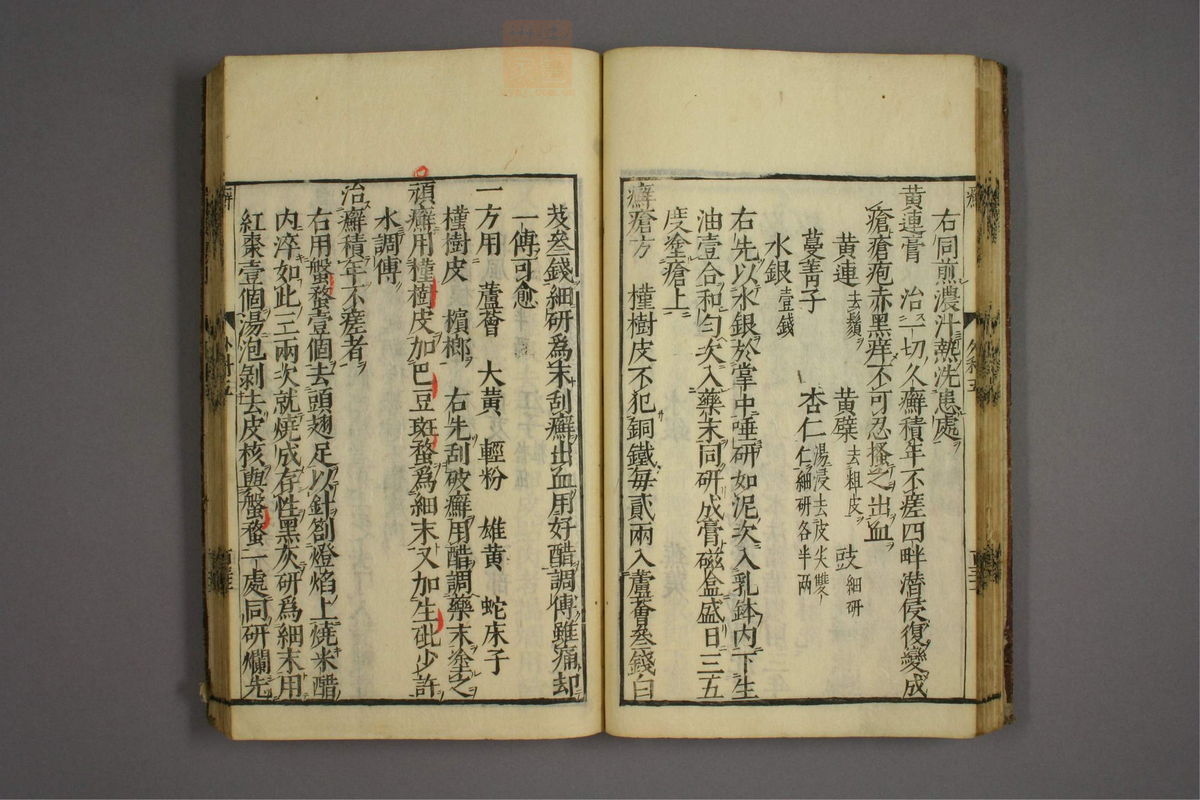 右同煎濃汁熱洗患處
黃連膏 治一切久癬積年不瘥四畔潜侵復變成
瘡瘡疱赤黑痒不可忍搔之出血
黃連去鬚 黃檗去粗皮 豉細研
蔓菁子 杏仁湯浸去皮尖雙仁細研各半兩
水銀壹錢
右先以水銀於掌中唾研如泥次入乳鉢内下生
油壹合和匀次入藥末同研成膏磁盒盛日三五
度塗瘡上
癬瘡方 槿樹皮不犯銅鐵每貳兩入蘆薈叄錢白
芨叄錢細研爲末刮癬出血用好醋調傅雖痛却
一傅可愈
一方用 蘆薈 大黃 輕粉 雄黃 蛇床子
槿樹皮 檳榔 右先刮破癬用醋調藥末塗之
頑癬用槿樹皮加巴豆斑蝥爲細末又加生砒少許
水調傅
治癬積年不瘥者
右用盤蝥壹個去頭翅足以針劄燈焰上燒米醋
内淬如此三兩次就燒成存性黑灰研爲細末用
紅棗壹個湯泡剝去皮核與盤蝥一處同研爛先